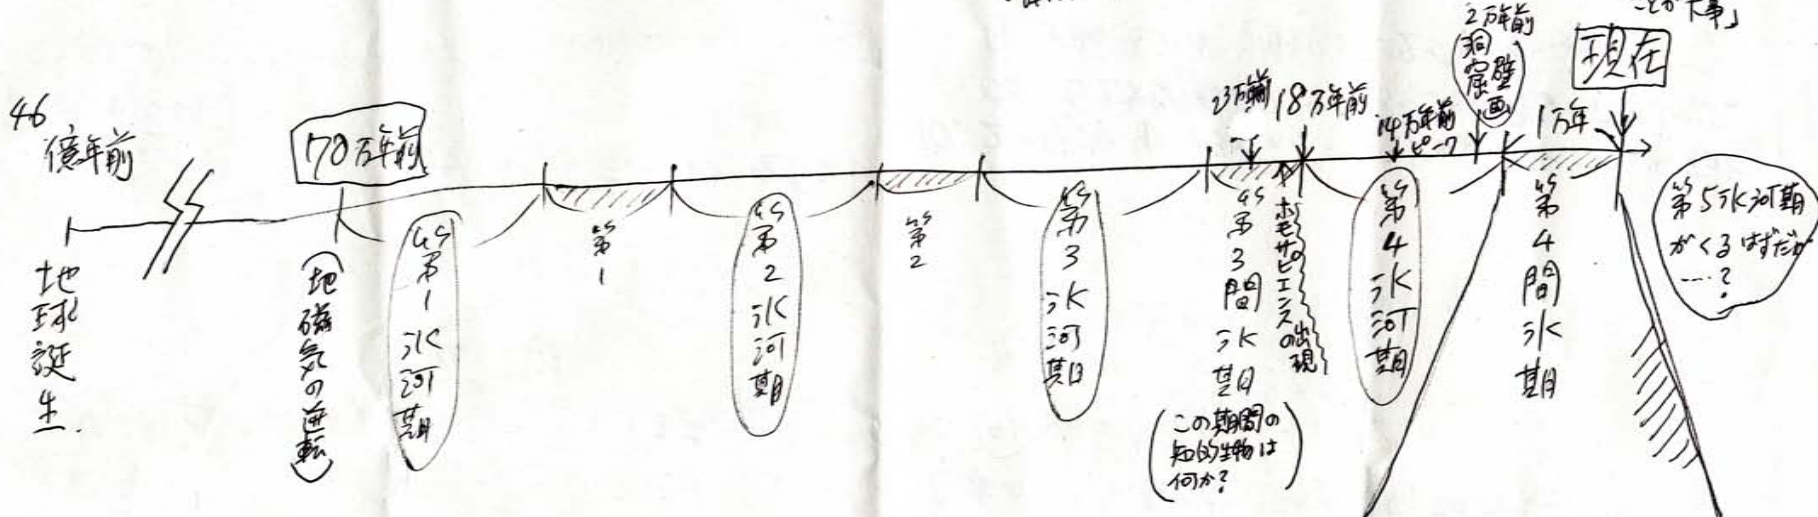 ことが大事」
46
億年前
地球誕生.
170万年前
(地磁気の逆転)
第1氷河期
第1
第2氷河期
第2
第3氷河期
18万年前
第3間氷期
ホモサピエンスの出現
(この期間の
知的生物は
何か?)
14万年前
ピーク
第4氷河期
2万年前
(洞窟壁画)
1万年
現在
第4間氷期
第5氷河期
がくるはずだが
……?